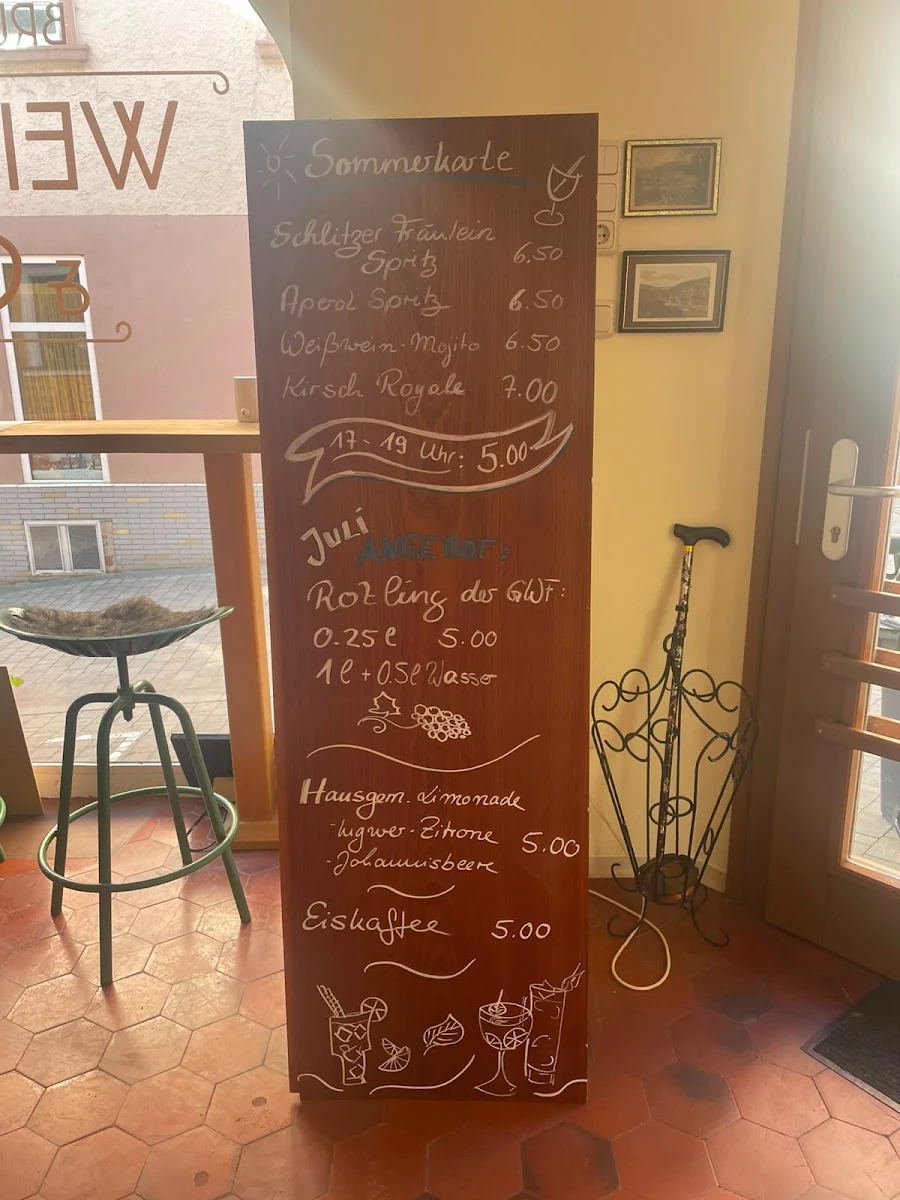 BRU
WEI
Sommerkarte
Schlitzer Fräulein
Spritz 6.50
Aperol Spritz 6.50
Weißwein-Mojito 6.50
Kirsch Royale 7.00
17-19 Uhr: 5.00
Juli
ANGEBOT:
Rotling der GWF:
0.25l 5.00
1l + 0.5l Wasser
Hausgem. Limonade
- Ingwer-Zitrone 5.00
- Johannisbeere
Eiskaffee 5.00